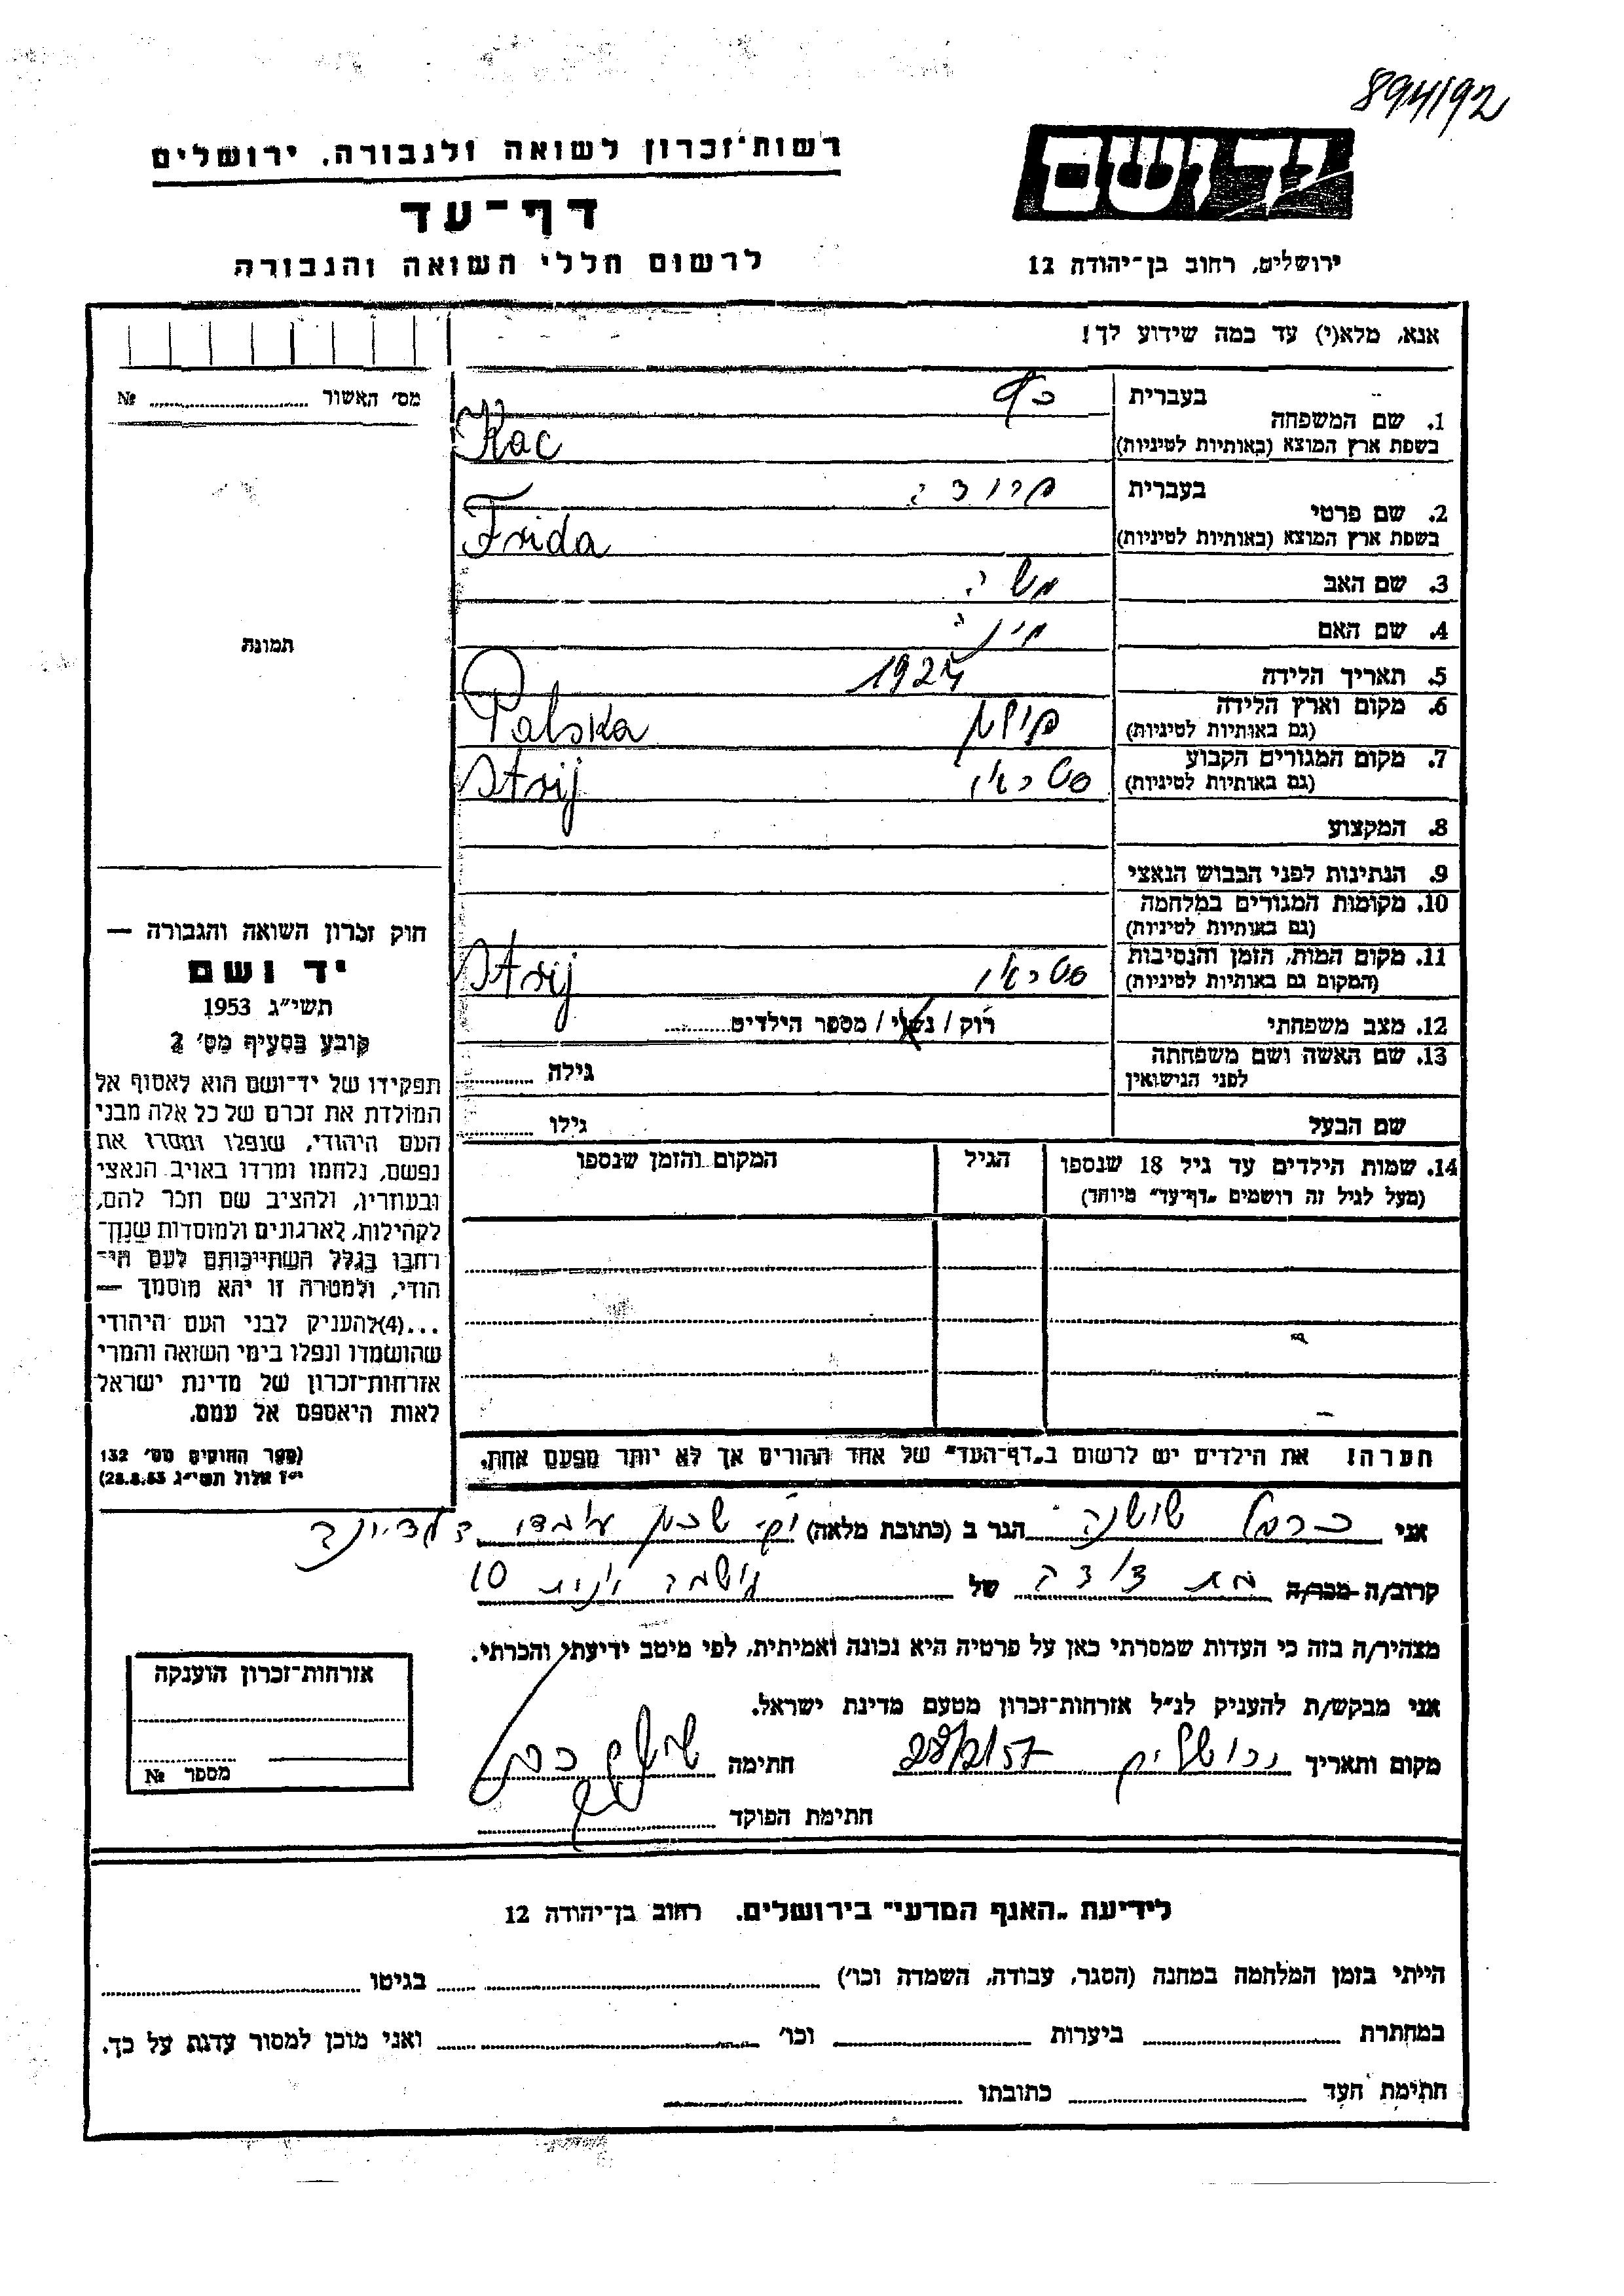 894/92
רשות־זכרון לשואה ולגבורה, ירושלים
יד ושם
דף־עד
לרשום חללי השואה והגבורה
ירושלים, רחוב בן־יהודה 12
אנא, מלא(י) עד כמה שידוע לך!
מס' האשור № 
1. שם המשפחה
בעברית כץ
בשפת ארץ המוצא (באותיות לטיניות) Kac
2. שם פרטי
בעברית פרידה
בשפת ארץ המוצא (באותיות לטיניות) Frida
3. שם האב משה
4. שם האם
5. תאריך הלידה 1924
6. מקום וארץ הלידה
(גם באותיות לטיניות) פולין Polska
7. מקום המגורים הקבוע
(גם באותיות לטיניות) Strij
8. המקצוע
9. הנתינות לפני הכבוש הנאצי
10. מקומות המגורים במלחמה
(גם באותיות לטיניות)
11. מקום המות, הזמן והנסיבות
(המקום גם באותיות לטיניות) Strij
12. מצב משפחתי רוק / נשוי / מספר הילדים
13. שם האשה ושם משפחתה
לפני הנישואין גילה
שם הבעל גילו
14. שמות הילדים עד גיל 18 שנספו
(מעל לגיל זה רושמים „דף־עד” מיוחד)
הגיל
המקום והזמן שנספו
תמונה
חוק זכרון השואה והגבורה —
יד ושם
תשי״ג 1953
קובע בסעיף מס' 2
תפקידו של יד־ושם הוא לאסוף אל
המולדת את זכרם של כל אלה מבני
העם היהודי, שנפלו ומסרו את
נפשם, נלחמו ומרדו באויב הנאצי
ובעוזריו, ולהציב שם וזכר להם,
לקהילות, לארגונים ולמוסדות שנח־
רחבו בגלל השתייכותם לעם הי־
הודי, ולמטרה זו יהא מוסמך —
...(4)להעניק לבני העם היהודי
שהושמדו ונפלו בימי השואה והמרי
אזרחות־זכרון של מדינת ישראל
לאות היאספם אל עמם.
(ספר החוקים מס' 132
י״ז אלול תשי״ג 28.8.53)
הערה! את הילדים יש לרשום ב„דף־העד” של אחד ההורים אך לא יותר מפעם אחת.
אני כרמל שושנה הגר ב (כתובת מלאה)
קרוב/ה מכר/ה בת דודה של 10
מצהיר/ה בזה כי העדות שמסרתי כאן על פרטיה היא נכונה ואמיתית, לפי מיטב ידיעתי והכרתי.
אני מבקש/ת להעניק לנ״ל אזרחות־זכרון מטעם מדינת ישראל.
מקום ותאריך ירושלים חתימה
חתימת הפוקד
אזרחות־זכרון הוענקה
מספר №
לידיעת „האגף המדעי” בירושלים. רחוב בן־יהודה 12
הייתי בזמן המלחמה במחנה (הסגר, עבודה, השמדה וכו') בגיטו
במחתרת ביערות וכו' ואני מוכן למסור עדות על כך.
חתימת העד כתובתו